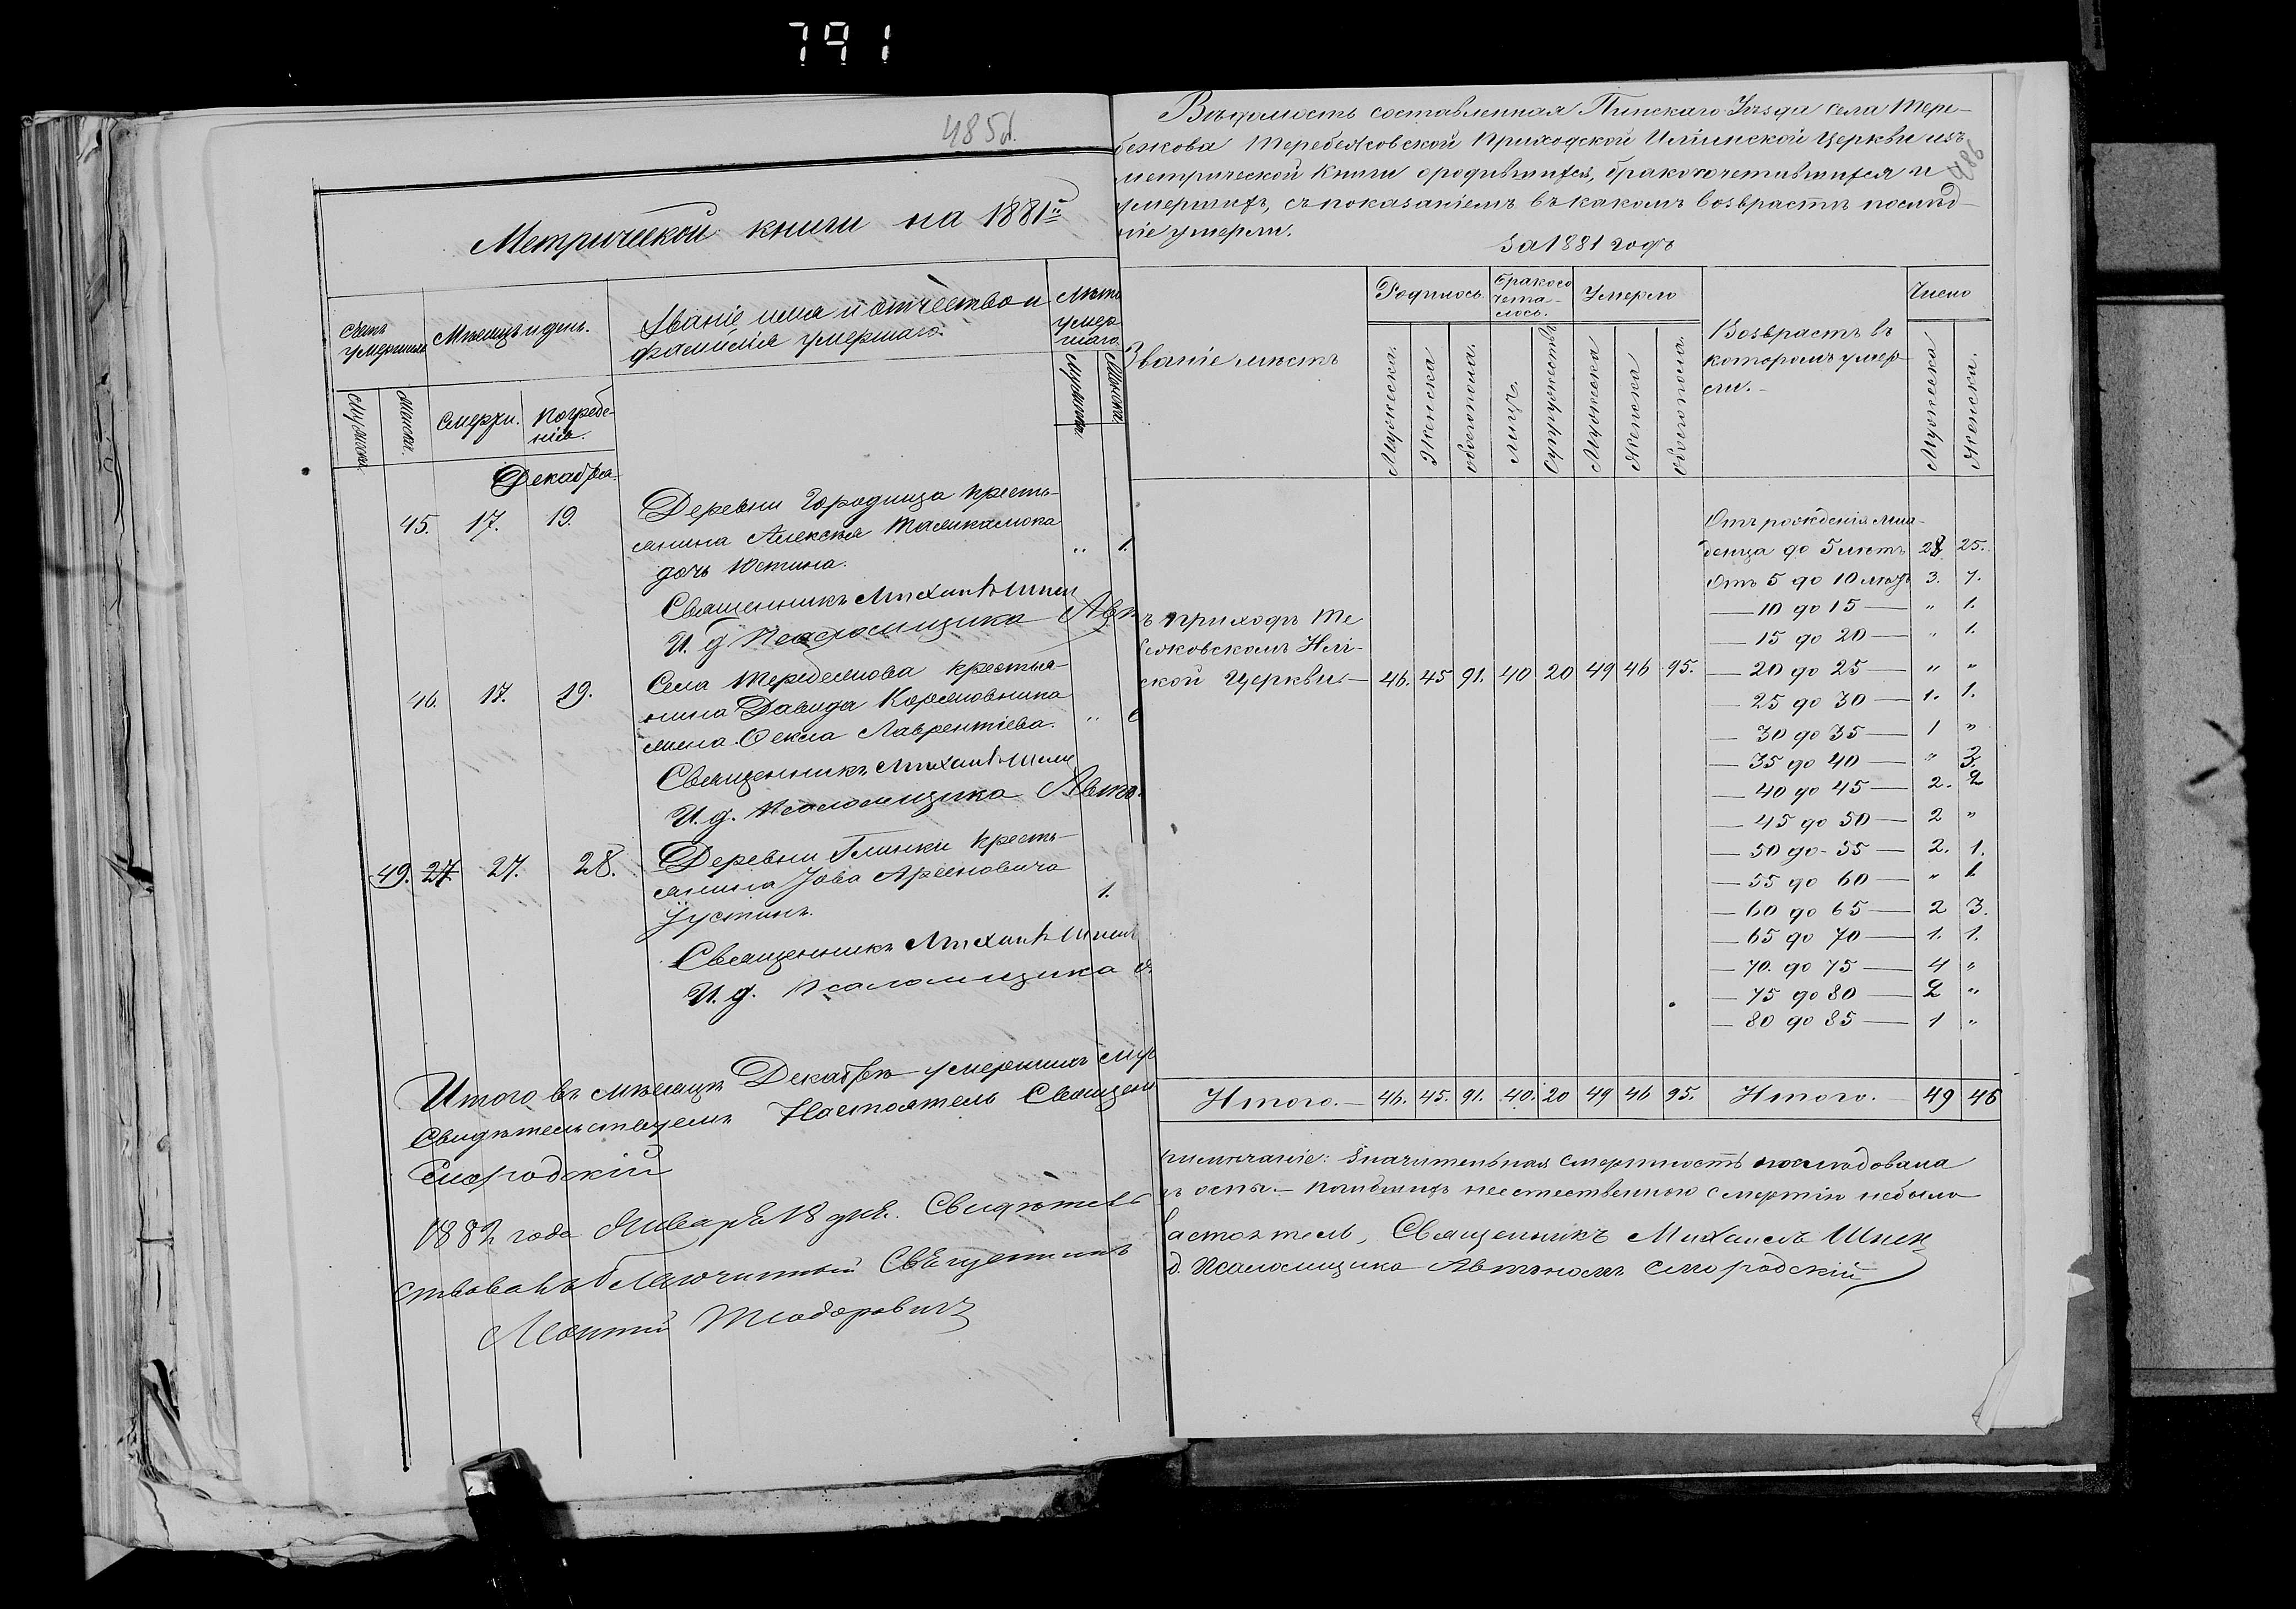 791
485 об.
Метрической книги на 1881й
Счетъ умершихъ
Мѣсяцъ и день.
Званіе имя и отчество и фамилія умершаго.
Лѣта умершаго
Мужеска
Женска.
Смерти.
Погребенія.
Мужеска
Женска
Декабрь.
45. 17. 19.
Деревни Городища кресть-
янина Алексѣя
дочь Юстина. " 1.
Священникъ Михаилъ Шпен
И. д. Псаломщика Авт
46. 17. 19.
Села Теребежова крестья-
нина Давида
жена Ѳекла Лаврентіева. "
Священникъ Михаилъ Шпен
И. д. Псаломщика Авто
49. 27. 27. 28.
Деревни Глинки кресть-
янина Іова Арсеновича
Іустинъ. 1.
Священникъ Михаилъ Шпен
И. д. Псаломщика
Итого въ мѣсяцѣ Декабрѣ умершихъ муж
Свидѣтельствуемъ Настоятель Священ
Смородскій
1882 года Января 18 дня. Свидѣтель
ствовалъ благочинный Священникъ
Тиодоровичъ
Вѣдомость составленная Пинскаго Уѣзда села Тере-
бежова Теребежовской Приходской Илiинской Церкви изъ
метрической книги о родившихся, бракосочетавшихся и
умершихъ, съ показаніемъ въ какомъ возврастѣ послѣд-
ніе умерли.
486
За 1881 годъ
Званіе мѣстъ
Родилось.
Бракосо
чета-
лось.
Умерло
Возврастъ въ
которомъ умер-
ли.
Число
Мужеска.
Женска
обоего пола.
лицъ.
Супружествъ
Мужеска
Женска
Обоего пола.
Мужеска
Женска.
Отъ рожденія мла-
денца до 5 лѣтъ 28 25.
Отъ 5 до 10 лѣтъ 3. 7.
— 10 до 15 — " 1.
— 15 до 20 — " 1.
— 20 до 25 — " "
— 25 до 30 — 1. 1.
— 30 до 35 — 1 "
— 35 до 40 — " 3.
— 40 до 45 — 2. 2
— 45 до 50 — 2 "
— 50 до 55 — 2. 1.
— 55 до 60 — " 1.
— 60 до 65 — 2 3.
— 65 до 70 — 1. 1.
— 70. до 75 — 4 "
— 75 до 80 — 2 "
— 80 до 85 — 1 "
ъ приходѣ Те
бежовскомъ Илі-
ской Церкви — 46. 45 91. 40 20 49 46 95.
Итого. — 46. 45. 91. 40. 20 49 46 95. Итого. — 49 46
римѣчаніе: Значительная смертность послѣдовала
ъ оспы. — погибшихъ неестественною смертію небыло
астоятель, Священникъ Михаилъ Шпен
д. Псаломщика Автономъ Смородскій